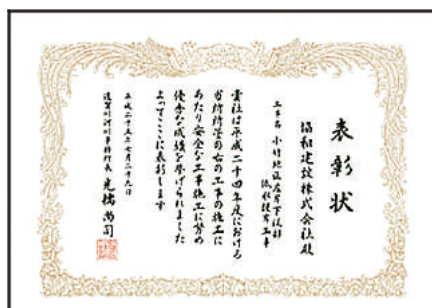 表彰状
協和建設株式会社殿
工事名 小竹地区
工事
貴社は平成二十四年度における
当所所管の右の工事の施工に
あたり安全な工事施工に努め
優秀な成績を挙げられました
よってここに表彰します
平成二十五年七月二十九日
遠賀川河川事務所長 光橋尚司